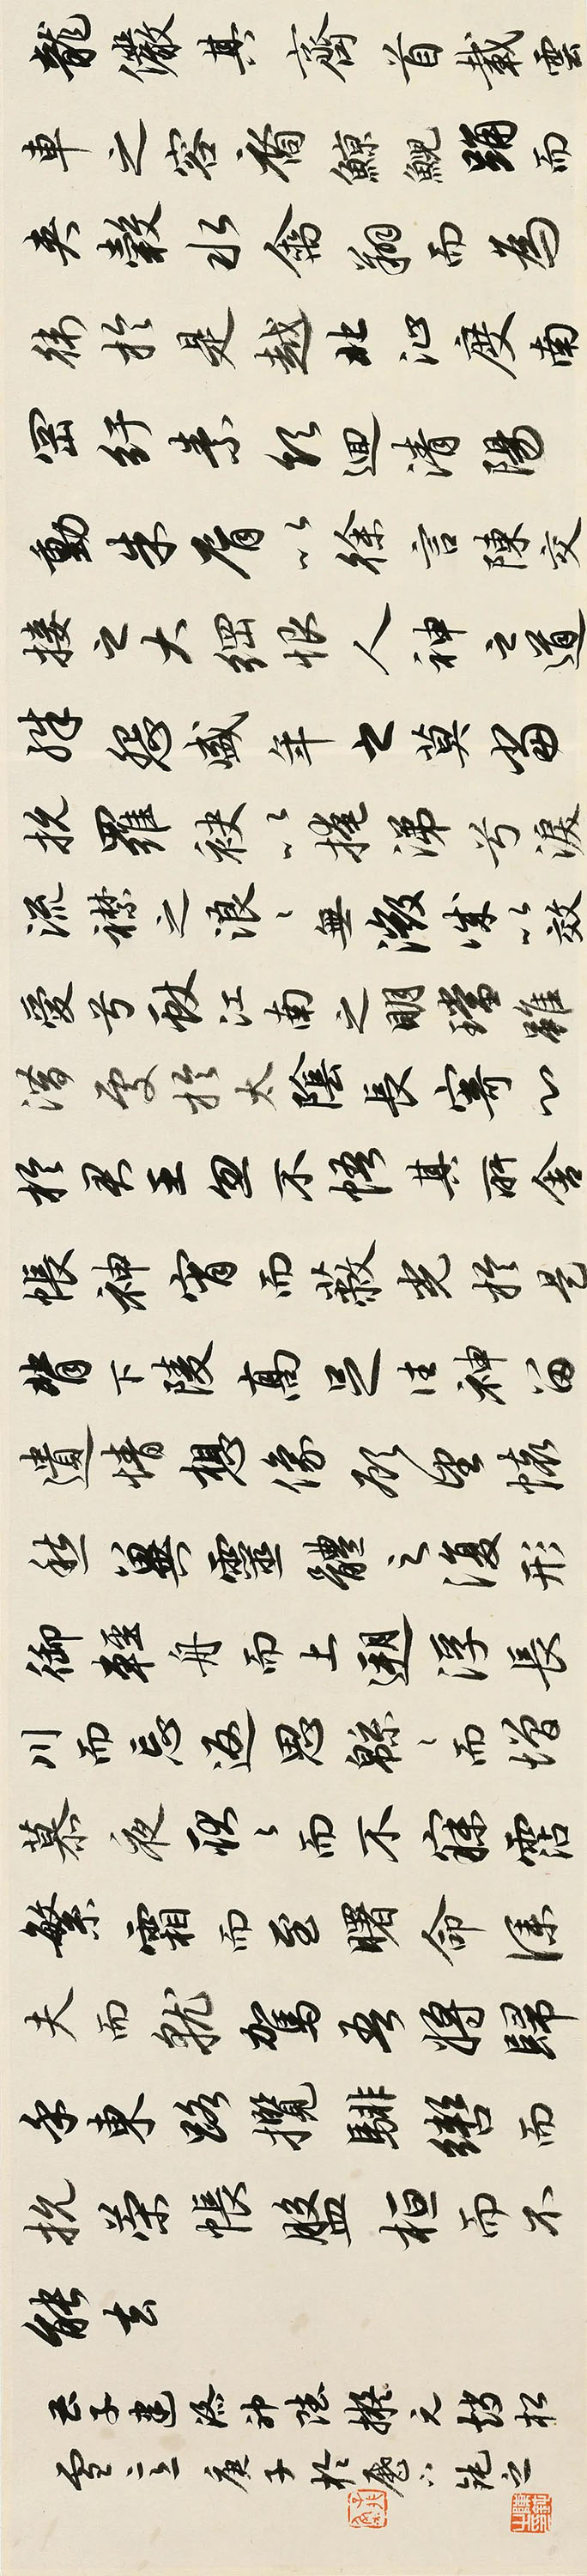 龍儼其齊首載雲
車之容裔鯨鯢踴而
夾轂水禽翔而為
衛於是越北沚度南
岡紆素領迴清陽
動朱脣以徐言陳交
接之大綱恨人神之道
殊怨盛年之莫當
抗羅袂以掩涕兮淚
流襟之浪〻無微誠以效
愛兮獻江南之明璫雖
潛處於太陰長寄心
於君王忽不悟其所舍
悵神宵而蔽光於是
背下陵高足往神留
遺情想像顧望懷
愁冀靈體之復形
御輕舟而上遡浮長
川而忘返思綿〻而增
慕夜耿〻而不寐霑
繁霜而至曙命僕
夫而就駕吾將歸
乎東路攬騑轡而
抗策悵盤桓而不
能去
子建洛神賦擬元趙松
雪意庚子於